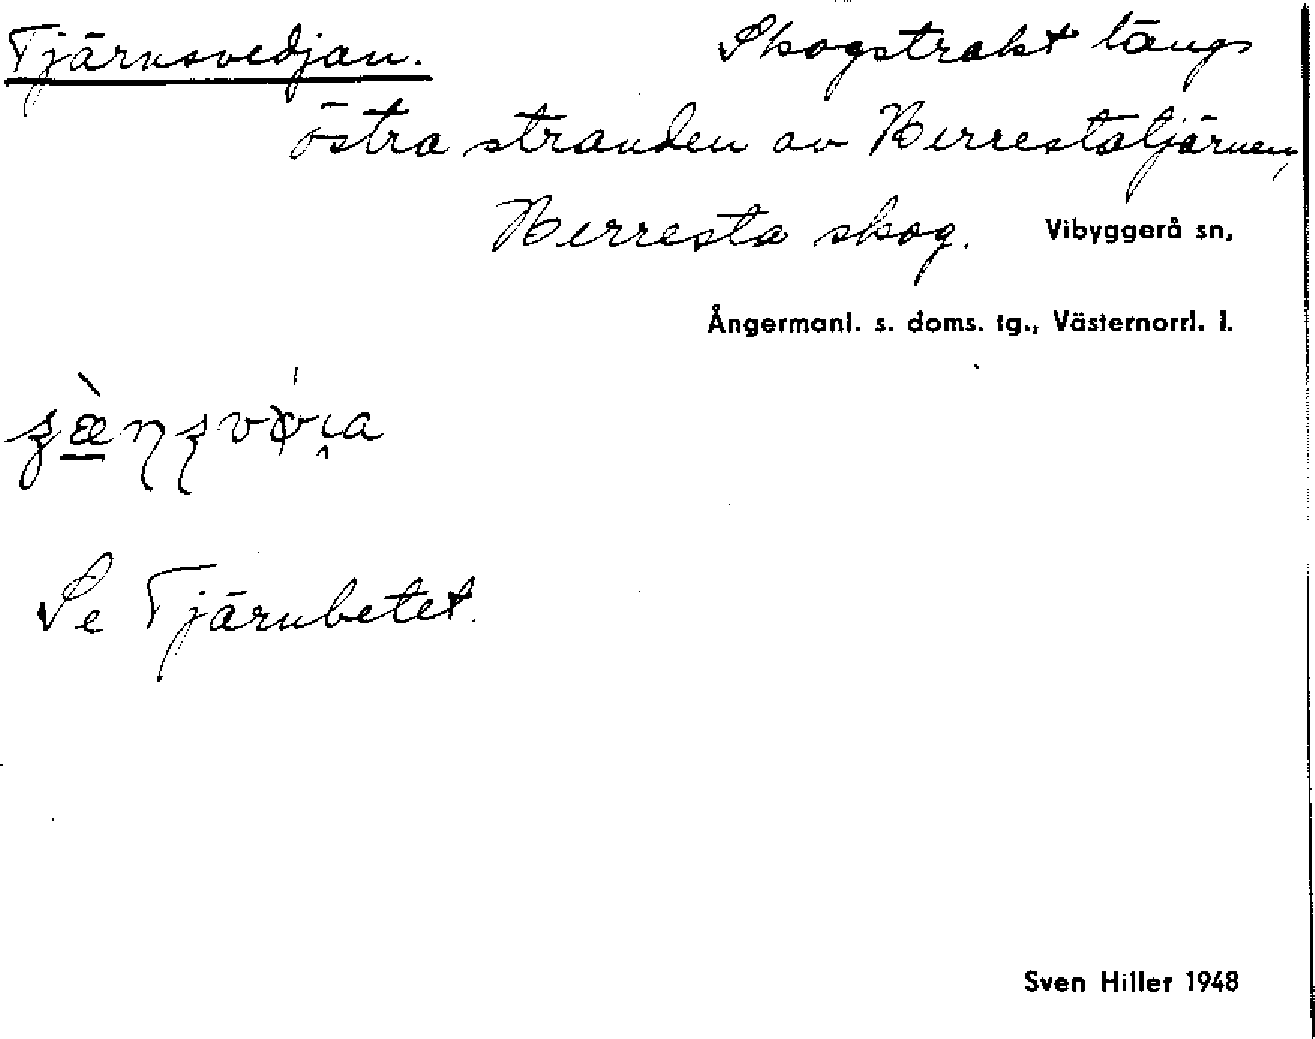 Tjärnsvedjan. Skogstrakt längs
östra stranden av Berrestatjärnen,
Berresta skog. Vibyggerå sn,
Ångermanl. s. doms. tg., Västernorrl. l.
Se Tjärnbetet.
Sven Hiller 1948